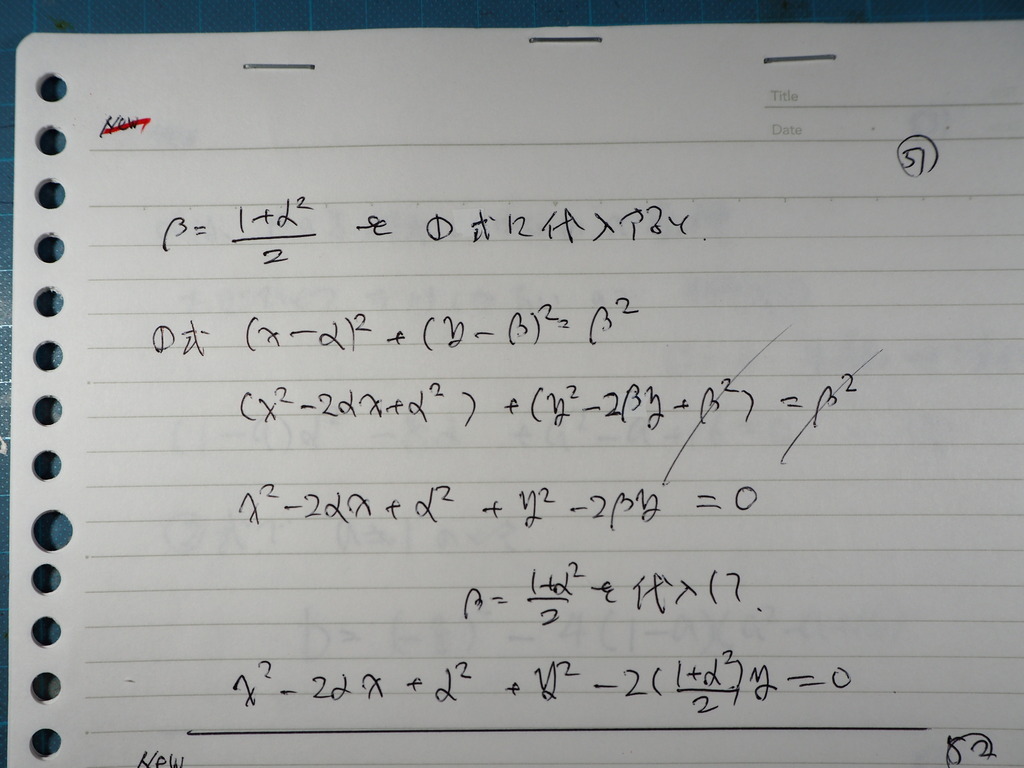 New
Title
Date
51
β = (1+α²)/2 を ①式に代入すると.
①式 (x-α)² + (y-β)² = β²
(x²-2αx+α²) + (y²-2βy+β²) = β²
x²-2αx+α² + y²-2βy = 0
β = (1+α²)/2 を代入して.
x²-2αx+α² + y²-2((1+α²)/2)y = 0
New
52